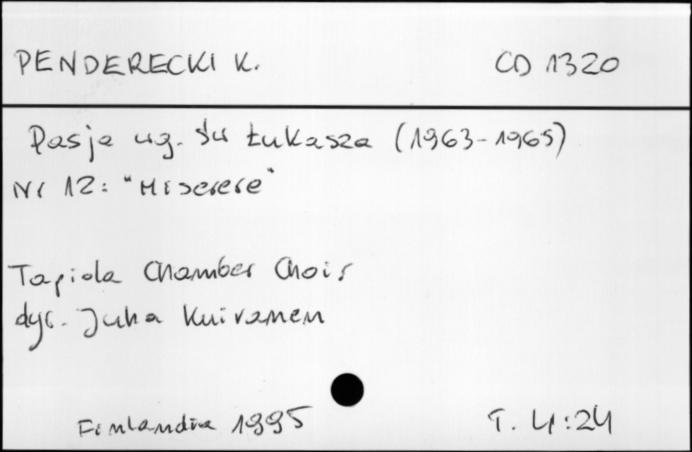 PENDERECKI K. CD 1320
Pasja wg. św Łukasza (1963-1965)
Nr 12: "Miserere"
Tapiola Chamber Choir
dyr. Juha Kuivanen
Finlandia 1995 T. 4:24